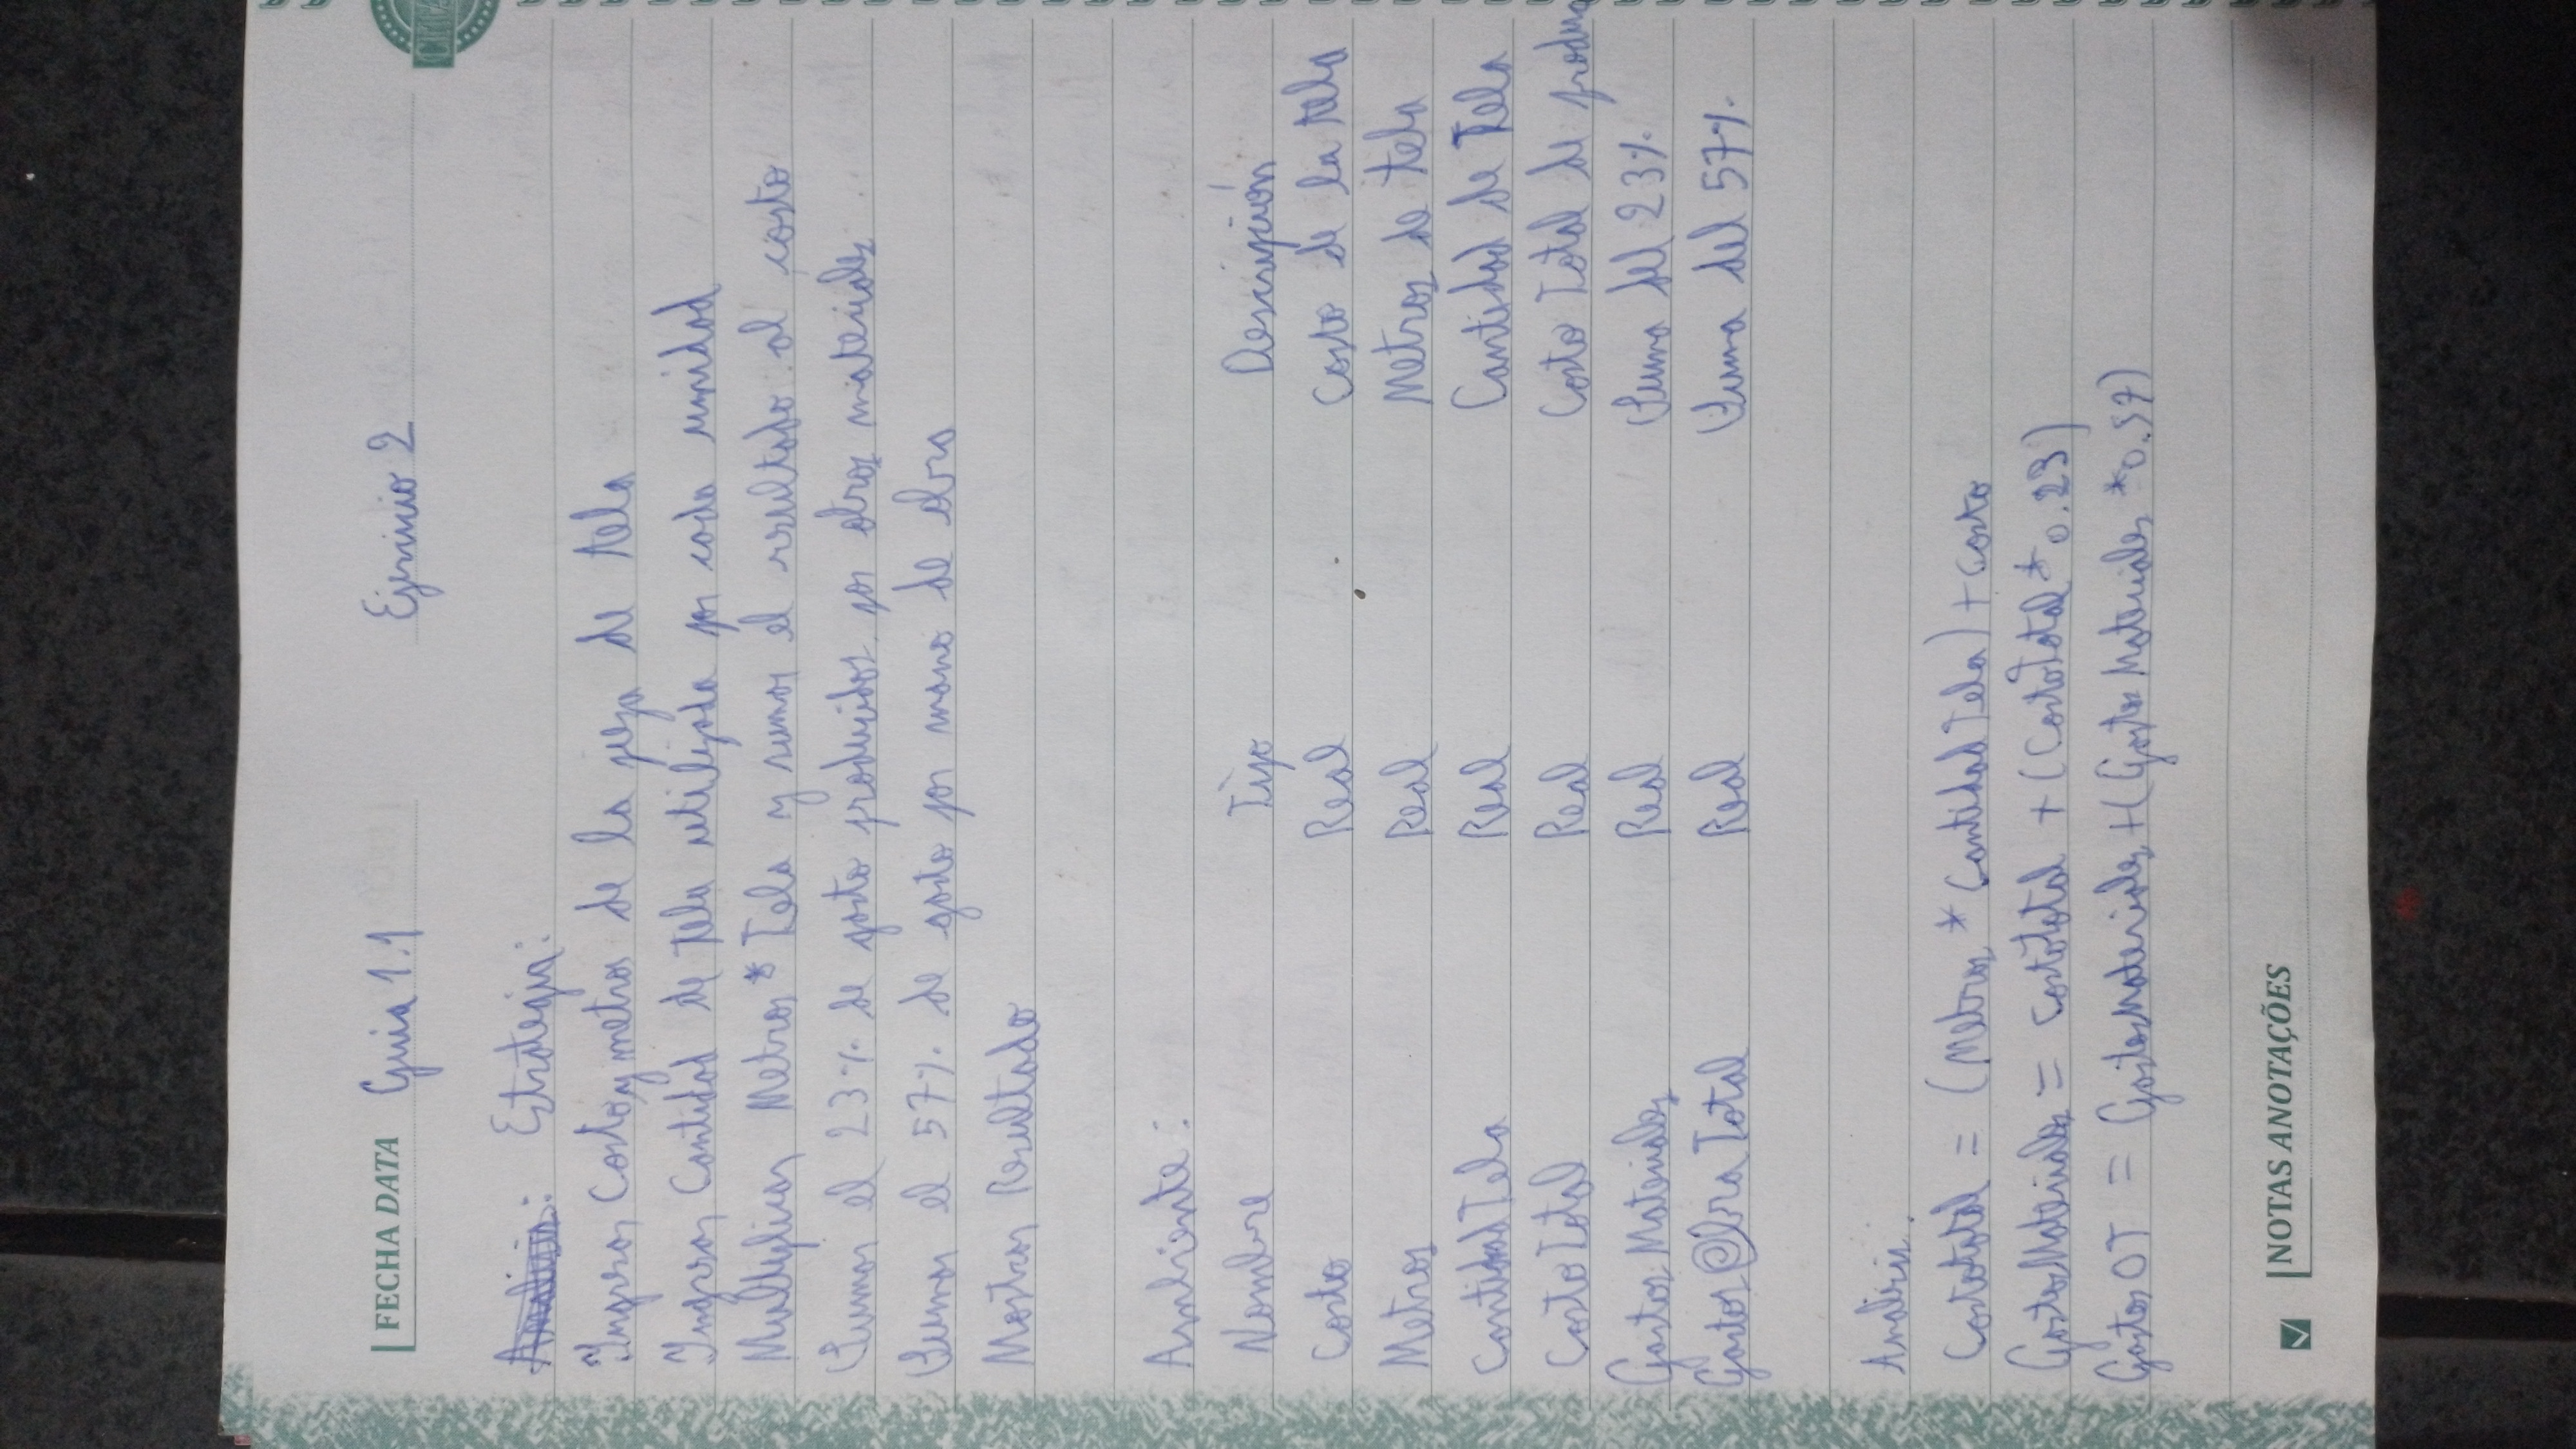 FECHA DATA Guia 1.1 Ejercicio 2
CINTA
Analisis: Etrategia:
Ingresar Costo y metros de la pieza de tela
Ingresar Cantidad de tela utilizada por cada unidad
Multiplicar Metros * Tela y sumar el resultado al costo
Sumar el 23% de gasto producidos por otros materiales
Sumar el 57% de gasto por mano de obra
Mostrar Resultado
Ambiente:
Nombre Tipo Descripción
Costo Real Costo de la tela
Metros Real Metros de tela
CantidadTela Real Cantidad de Tela
CostoTotal Real Costo Total de produc
GastosMateriales Real Suma del 23%
GastosObraTotal Real Suma del 57%
Analisis.
Costototal = (Metros * CantidadTela) + costo
GastosMateriales = costoTotal + (CostoTotal * 0.23)
Gastos OT = GastosMateriales + (GastosMateriales * 0.57)
NOTAS ANOTAÇÕES